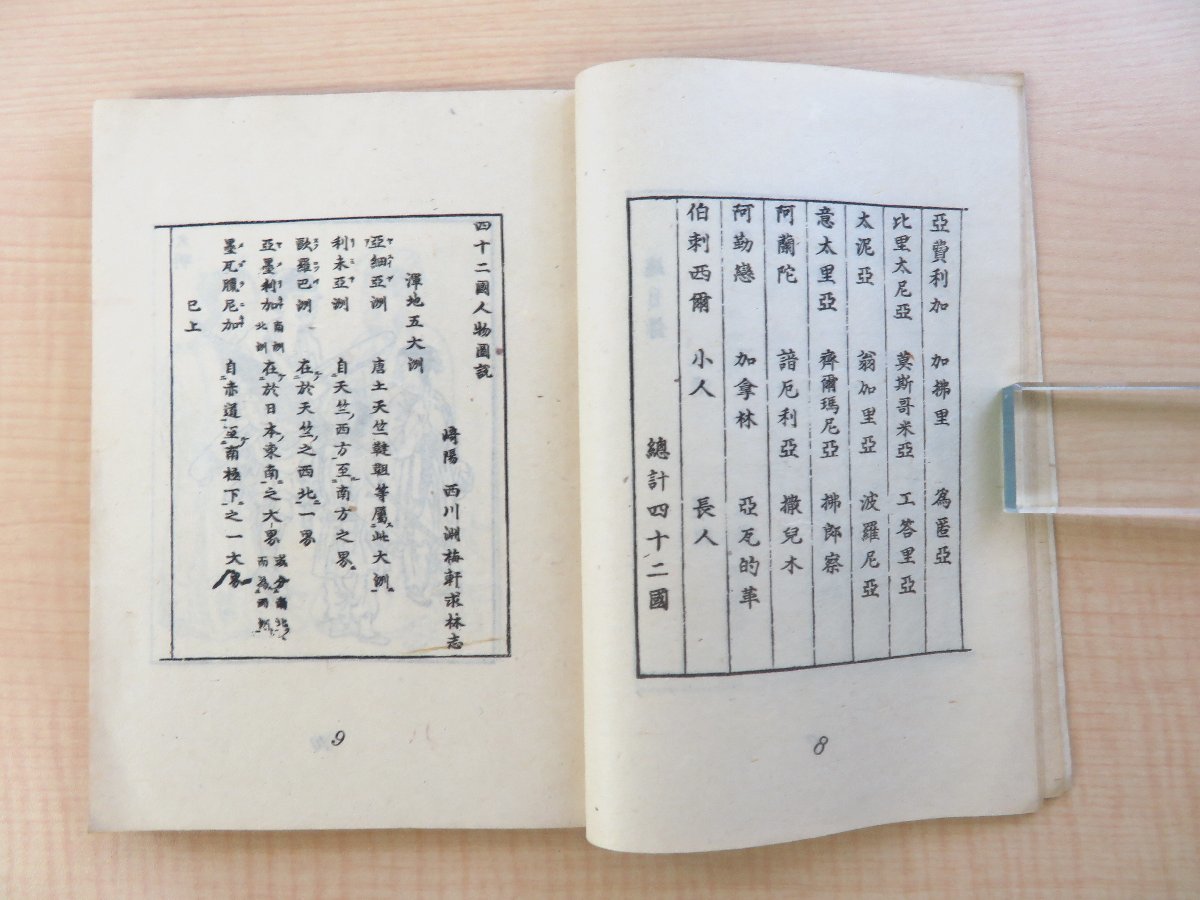 亞費利加 加拂里 為匿亞
比里太尼亞 莫斯哥米亞 工答里亞
太泥亞 翁加里亞 波羅尼亞
意太里亞 齊爾瑪尼亞 拂郎察
阿蘭陀 諳厄利亞 撒兒木
阿勒戀 加拿林 亞瓦的革
伯刺西爾 小人 長人
總計四十二國
8
四十二國人物圖說
崎陽 西川淵梅軒求林志
渾地五大洲
亞細亞洲 唐土天竺韃靼等屬此大洲
利未亞洲 自天竺西方至南方之界
歐羅巴洲 在於天竺之西北界
亞墨利加 南洲 北洲 在於日本東南之大界 或分南北 而為兩洲
墨瓦臘尼加 自赤道至南極下之一大界
已上
9